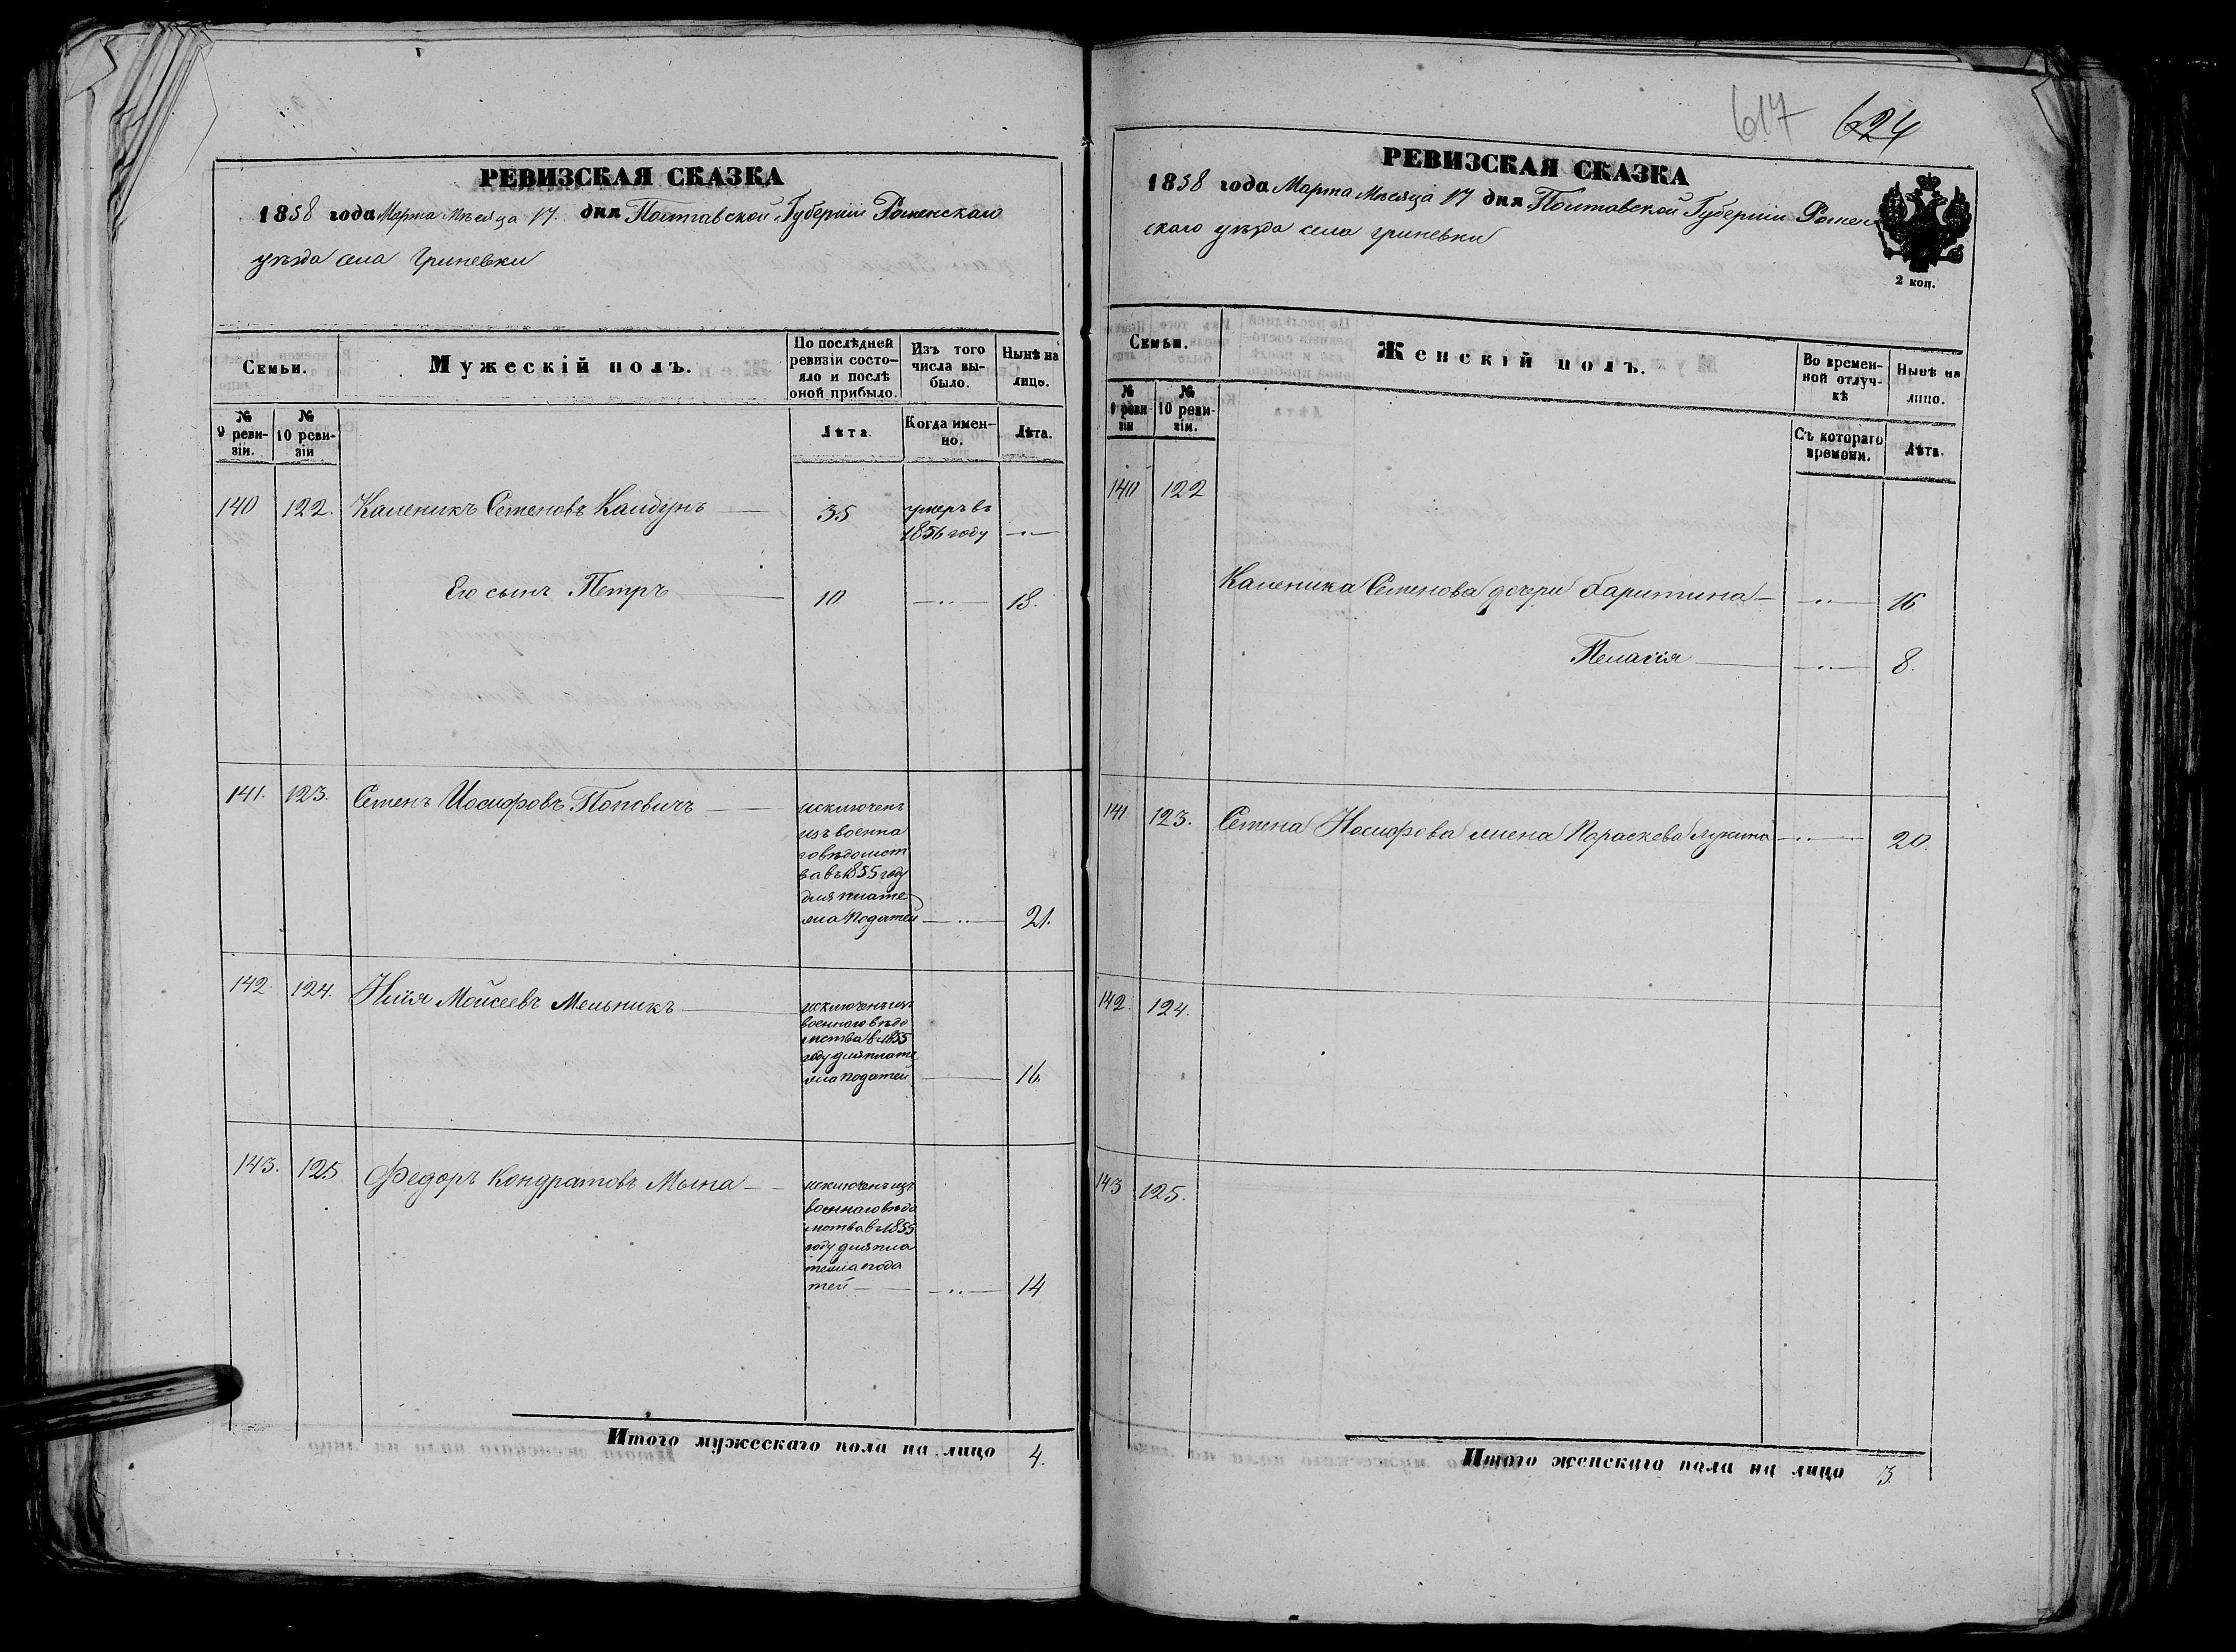 РЕВИЗСКАЯ СКАЗКА
1858 года Марта Мѣсяца 17 дня Полтавской Губерніи Роменскаго
уѣзда села Гриневки
Семьи.
Мужескій полъ.
По послѣдней ревизіи состо-
яло и послѣ
оной прибыло.
Изъ того
числа вы-
было.
Нынѣ на
лицо.
№
9 реви-
зіи.
№
10 реви-
зіи
Лѣта.
Когда имен-
но.
Лѣта.
140 122. Каленикъ Семеновъ 35 умеръ въ
1856 году
Его сынъ Петръ 10 18.
141. 123. Семенъ Иосифовъ Поповичъ исключенъ
изъ военна
го вѣдомст
ва въ 1855 году
для плате
жа податей 21.
142. 124. Илія Моисеевъ Мельникъ исключенъ изъ
военнаго вѣдо
мства в 1855
году для плате
жа податей 16.
143. 125 Федоръ Кондратовъ исключенъ изъ
военнаго вѣдо
мства в 1855
году для пла
тежа пода
тей 14
Итого мужескаго пола на лицо 4.
617 624
РЕВИЗСКАЯ СКАЗКА
1858 года Марта Мѣсяца 17 дня Полтавской Губерніи Ромен
скаго уѣзда села Гриневки
2 коп.
Семьи.
Женскій полъ.
Во времен-
ной отлуч-
кѣ
Нынѣ на
лицо.
№
9 реви
зіи
№
10 реви-
зіи.
Съ котораго
времени.
Лѣта.
140 122
Каленика Семенова дочери Харитина 16
Пелагія 8.
141 123. Семена Иосифова жена Параскева Лукина 20.
142. 124.
143 125.
Итого женскаго пола на лицо 3.